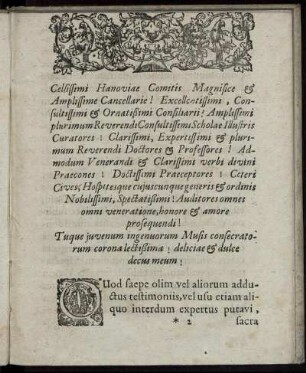 Celsissimi Hanoviae Comitis Magnifice &
Amplissime Cancellarie! Excellentissimi, Con-
sultissimi & Ornatissimi Consiliarii! Amplissimi
plurimum Reverendi Consultissimi, Scholae Illustris
Curatores! Clarissimi, Expertissimi & pluri-
mum Reverendi Doctores & Professores! Ad-
modum Venerandi & Clarissimi verbi divini
Praecones! Doctissimi Praeceptores! Ceteri
Cives, Hospitesque cujuscunque generis & ordinis
Nobilissimi, Spectatissimi! Auditores omnes
omni veneratione, honore & amore
prosequendi!
Tuque juvenum ingenuorum Musis consecrato-
rum corona lectissima, deliciae & dulce
decus meum;
QUod saepe olim vel aliorum addu-
ctus testimoniis, vel usu etiam ali-
quo interdum expertus putavi,
* 2 sacra